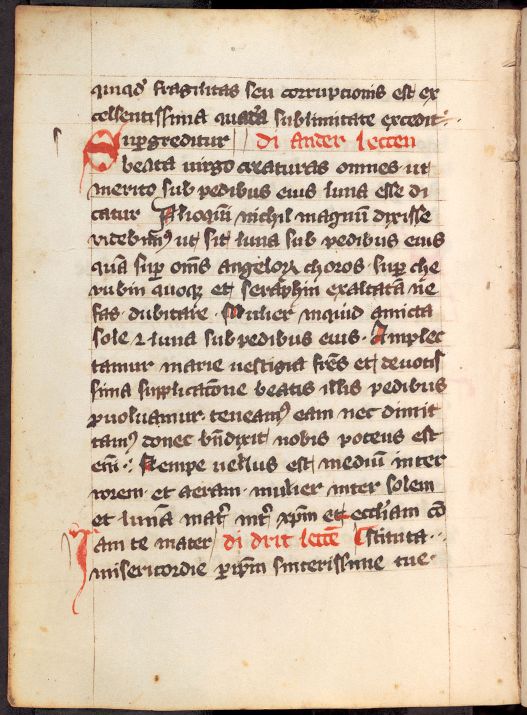 quiqd' fragilitas seu corruptionis est ex
cellentissima quada sublimitate excedit
Supgreditur di ander leccen
beata virgo creaturas omnes ut
merito sub pedibus eius luna esse di
catur Alioqui nichil magnu dixisse
videbim9 ut sit luna sub pedibus eius
qua sup oms angeloꝝ choros sup che
rubin quoqꝫ et seraphin exaltata ne
fas dubitare Mulier inquid amicta
sole ⁊ luna sub pedibus eius Amplec
tamur marie vestigia frēs et deuotis
sima supplicacōne beatis illis pedibus
ꝓuoluamur teneam9 eam nec dimit
tam9 donec bndixit nobis potens est
em Nempe vellus est mediu inter
rorem et aeram mulier inter solem
et luna mat' int' xpm et eccliam cō
Iam te mater di drit leccē stituta
misericordie ꝑ ipm sincerissime tue